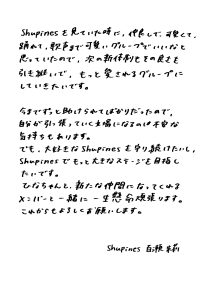 Shupinesを見ていた時に、仲良しで、可愛くて、
踊れて、歌声まで可愛いグループでいいなと
思っていたので、次の新体制もその良さを
引き継いで、もっと愛されるグループに
していきたいです。
今までずっと助けられてばかりだったので、
自分が引っ張っていく立場になるのは不安な
気持ちもあります。
でも、大好きなShupinesを守り続けたいし、
Shupinesでもっと大きなステージを目指し
たいです。
ひなちゃんと、新たな仲間になってくれる
メンバーと一緒に一生懸命頑張ります。
これからもよろしくお願いします。
Shupines 白瀬